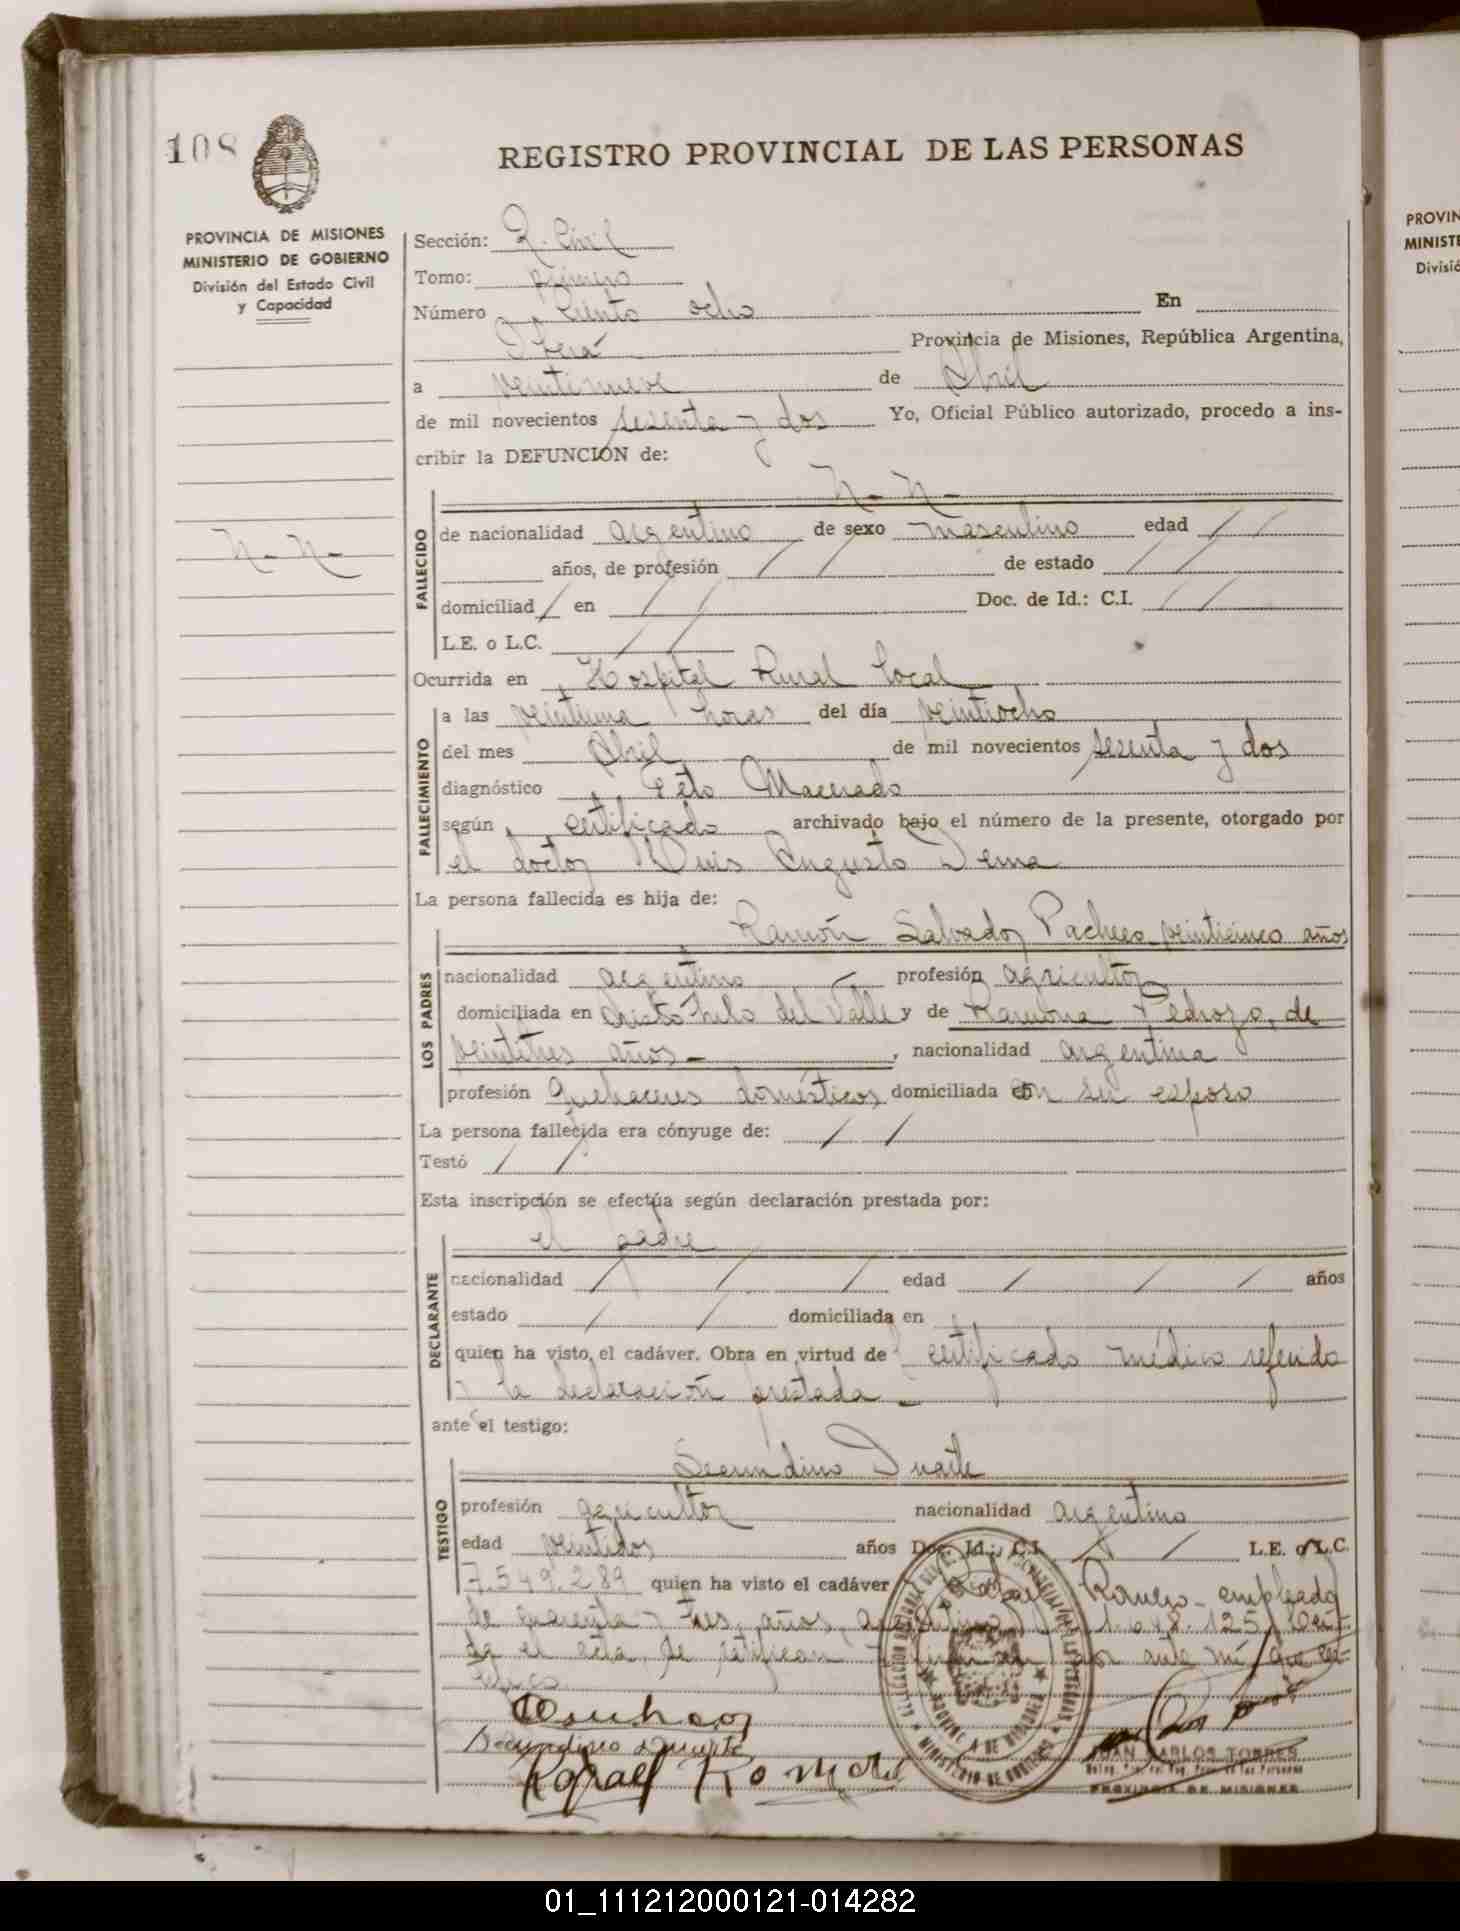 108
REGISTRO PROVINCIAL DE LAS PERSONAS
PROVINCIA DE MISIONES
MINISTERIO DE GOBIERNO
División del Estado Civil
y Capacidad
N - N -
Sección: R. Civil
Tomo: primero
Número Ciento ocho En
Oberá Provincia de Misiones, República Argentina,
a veintinueve de Abril
de mil novecientos sesenta y dos Yo, Oficial Público autorizado, procedo a ins-
cribir la DEFUNCIÓN de:
N - N -
FALLECIDO
de nacionalidad argentino de sexo masculino edad / /
años, de profesión / / de estado / /
domiciliad / en / / Doc. de Id.: C.I. / /
L.E. o L.C. / /
Ocurrida en Hospital Rural local
FALLECIMIENTO
a las veintiuna horas del día veintiocho
del mes Abril de mil novecientos sesenta y dos
diagnóstico Feto Macerado
según certificado archivado bajo el número de la presente, otorgado por
el doctor Luis Augusto Dema
La persona fallecida es hija de:
LOS PADRES
Ramón Salvador Pacheco veinticinco años
nacionalidad argentino profesión agricultor
domiciliada en del Valle y de Ramona Pedrozo, de
veintitres años - , nacionalidad argentina
profesión quehaceres domésticos domiciliada con su esposo
La persona fallecida era cónyuge de: / /
Testó / /
Esta inscripción se efectúa según declaración prestada por:
DECLARANTE
el padre
nacionalidad / / / edad / / / años
estado / / domiciliada en
quien ha visto el cadáver. Obra en virtud de certificado médico referido
y la declaración prestada -
ante el testigo:
TESTIGO
Secundino Duarte
profesión agricultor nacionalidad argentino
edad veintidos años Doc. Id.: C.I. / / L.E. o L.C.
7.549.289 quien ha visto el cadáver Romero - empleado
de cuarenta y tres años, argentino 1.618.125. Leí-
da el acta, se ratifican por ante mí, que cer-
tifico
Secundino Duarte
Rafael Romero
JUAN CARLOS TORRES
PROVINCIA DE MISIONES
MINISTERIO DE GOBIERNO
PROVIN
MINISTE
Divisió
01_111212000121-014282